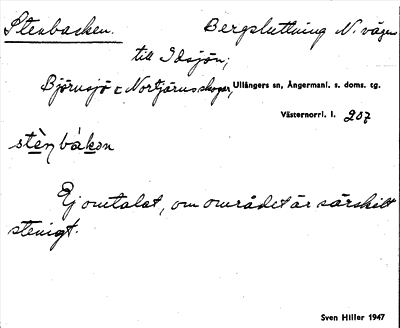 Stenbacken. Bergsluttning N. vägen
till Idsjön;
Björnsjö o Norrtjärns skogar, Ullångers sn, Ångermanl. s. doms. tg.
Västernorrl. l. 207
stèn bákən
Ej omtalat, om området är särskilt
stenigt.
Sven Hiller 1947